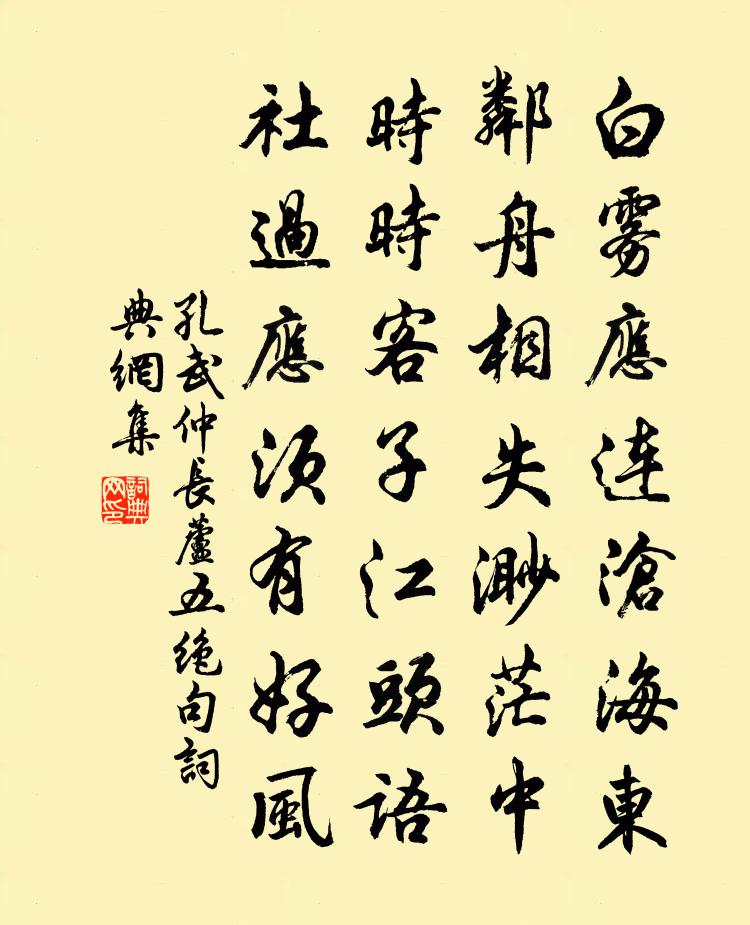 白雾應連滄海東
鄰舟相失渺茫中
時時客子江頭語
社過應須有好風
孔武仲長蘆五絶句詞
典網集
詞典
网印